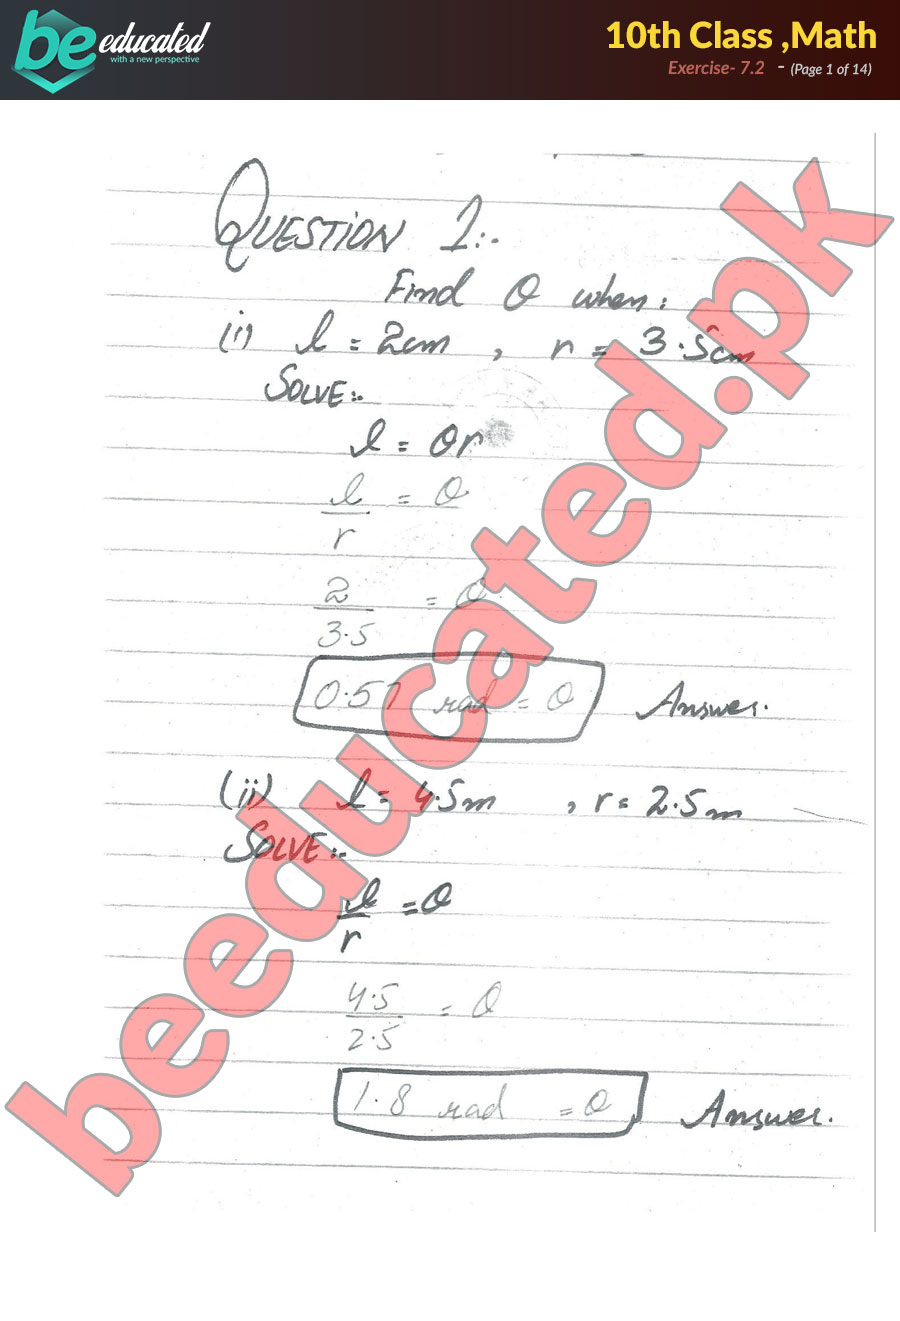 be educated
with a new perspective
10th Class ,Math
Exercise- 7.2 - (Page 1 of 14)
QUESTION 1:-
Find θ when:
(i) l = 2cm , r = 3.5cm
SOLVE:-
l = θr
l/r = θ
2/3.5 = θ
0.57 rad = θ Answer.
(ii) l = 4.5m , r = 2.5m
SOLVE:-
l/r = θ
4.5/2.5 = θ
1.8 rad = θ Answer.
beeducated.pk